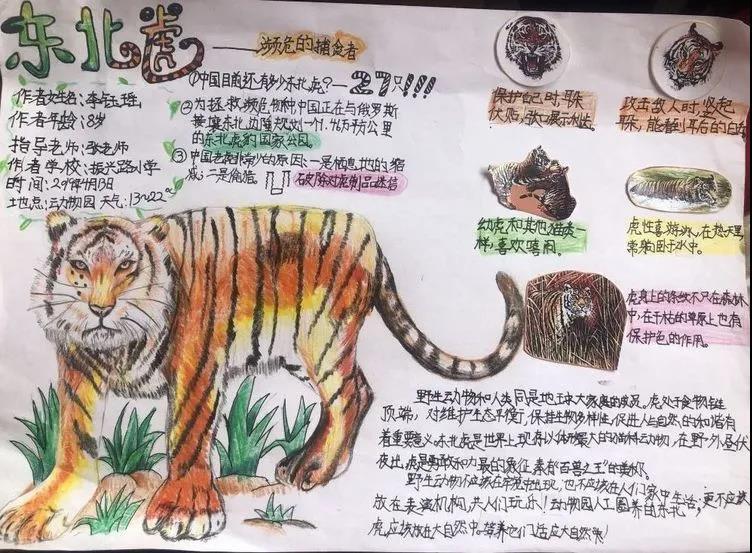 东北虎
——濒危的捕食者
作者姓名:李钰瑶
作者年龄:8岁
指导老师:张老师
作者学校:振兴路小学
时间:2019年4月3日
地点:动物园 天气:13~22℃
①中国目前还有多少东北虎?—27只!!!
②为拯救濒危物种中国正在与俄罗斯
黄窝东北边陲规划一个1.46万平方公里
的东北虎豹国家公园。
③中国老虎减少的原因:一是栖息地的缩
减;二是偷猎 破除对虎制品迷信
保护自己时,耳朵
伏贴,张口展示利齿。
攻击敌人时,竖起
耳朵,能看到耳后的白
幼虎和其他猫类一
样,喜欢嘻闹。
虎性喜游泳,在热天里,
常趴困于水中。
虎身上的条纹不只在森林
中,在干枯的草原上也有
保护色的作用。
野生动物和人类同是地球大家庭的成员。虎处于食物链
顶端,对维护生态平衡,保持生物多样性,促进人与自然的和谐有
着重要意义。东北虎是世界上现存体形最大的猫科动物,在野外昼伏
夜出,虎是勇敢和力量的象征,素有“百兽之王”的美称。
野生动物不应该在字宠中出现,也不应该在人们家中生活,更不应该
放在表演机构,共人们玩乐!动物园人工圈养的东北
虎,应该放在大自然中。养它们适应大自然!